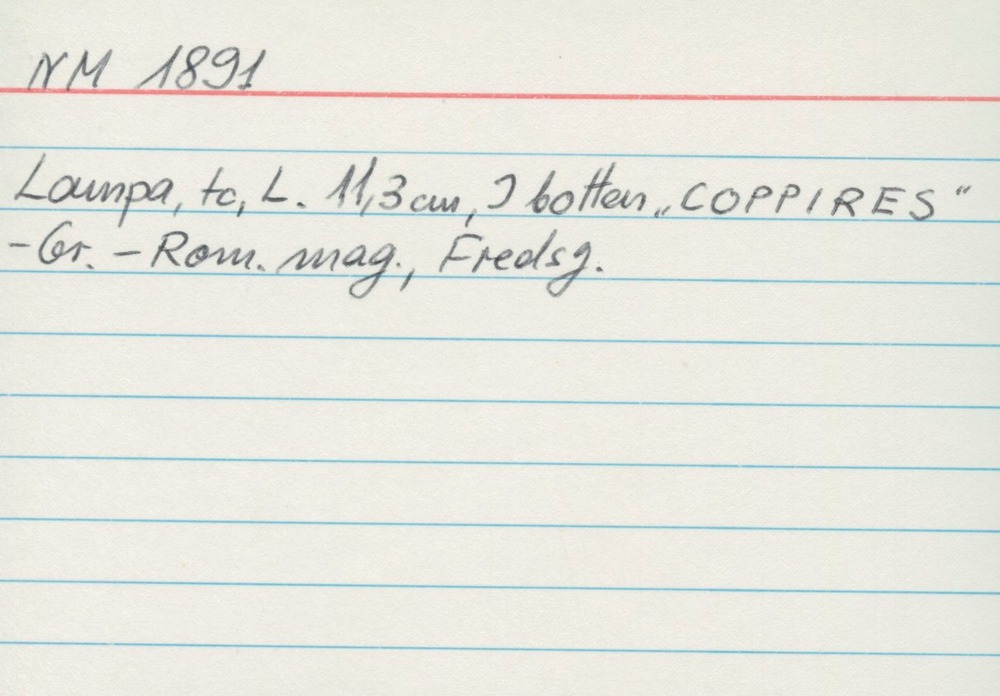 NM 1891
Lampa, tc, L. 11,3 cm, I botten „COPPIRES“
- Gr. - Rom. mag., Fredsg.